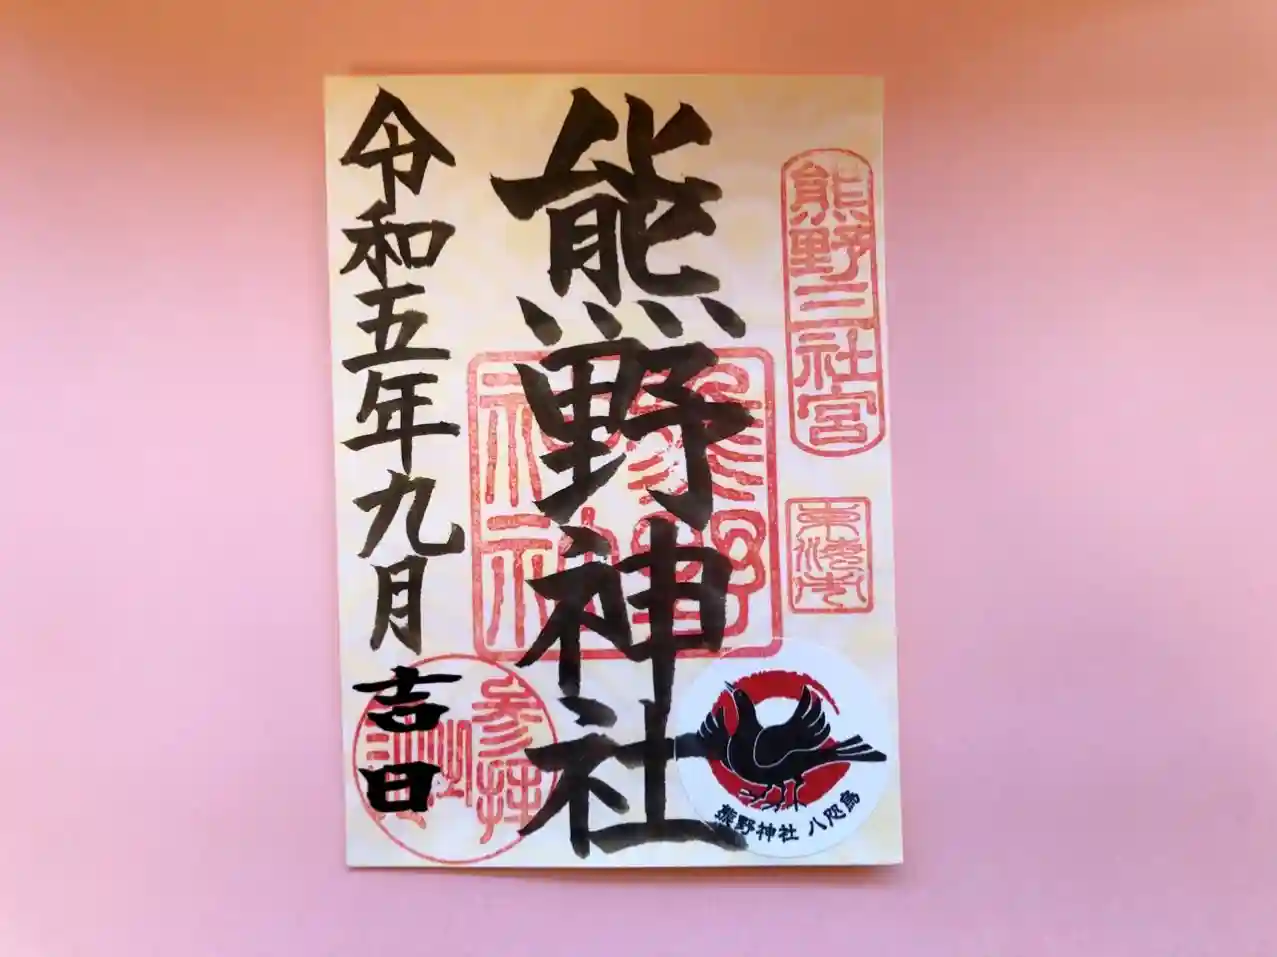 熊野三社宮
東海市
熊野神社
熊野神社
令和五年九月吉日
熊野神社 八咫烏